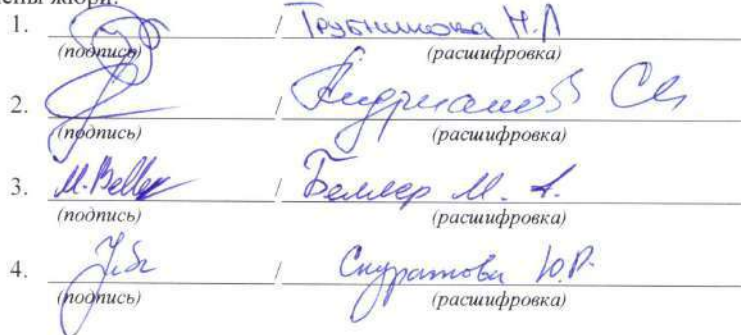 члены жюри:
1. / Трубникова Н.Л
(подпись) (расшифровка)
2. / Андрианов С
(подпись) (расшифровка)
3. M.Beller / Беллер М. А.
(подпись) (расшифровка)
4. / Скуратова Ю.Р.
(подпись) (расшифровка)